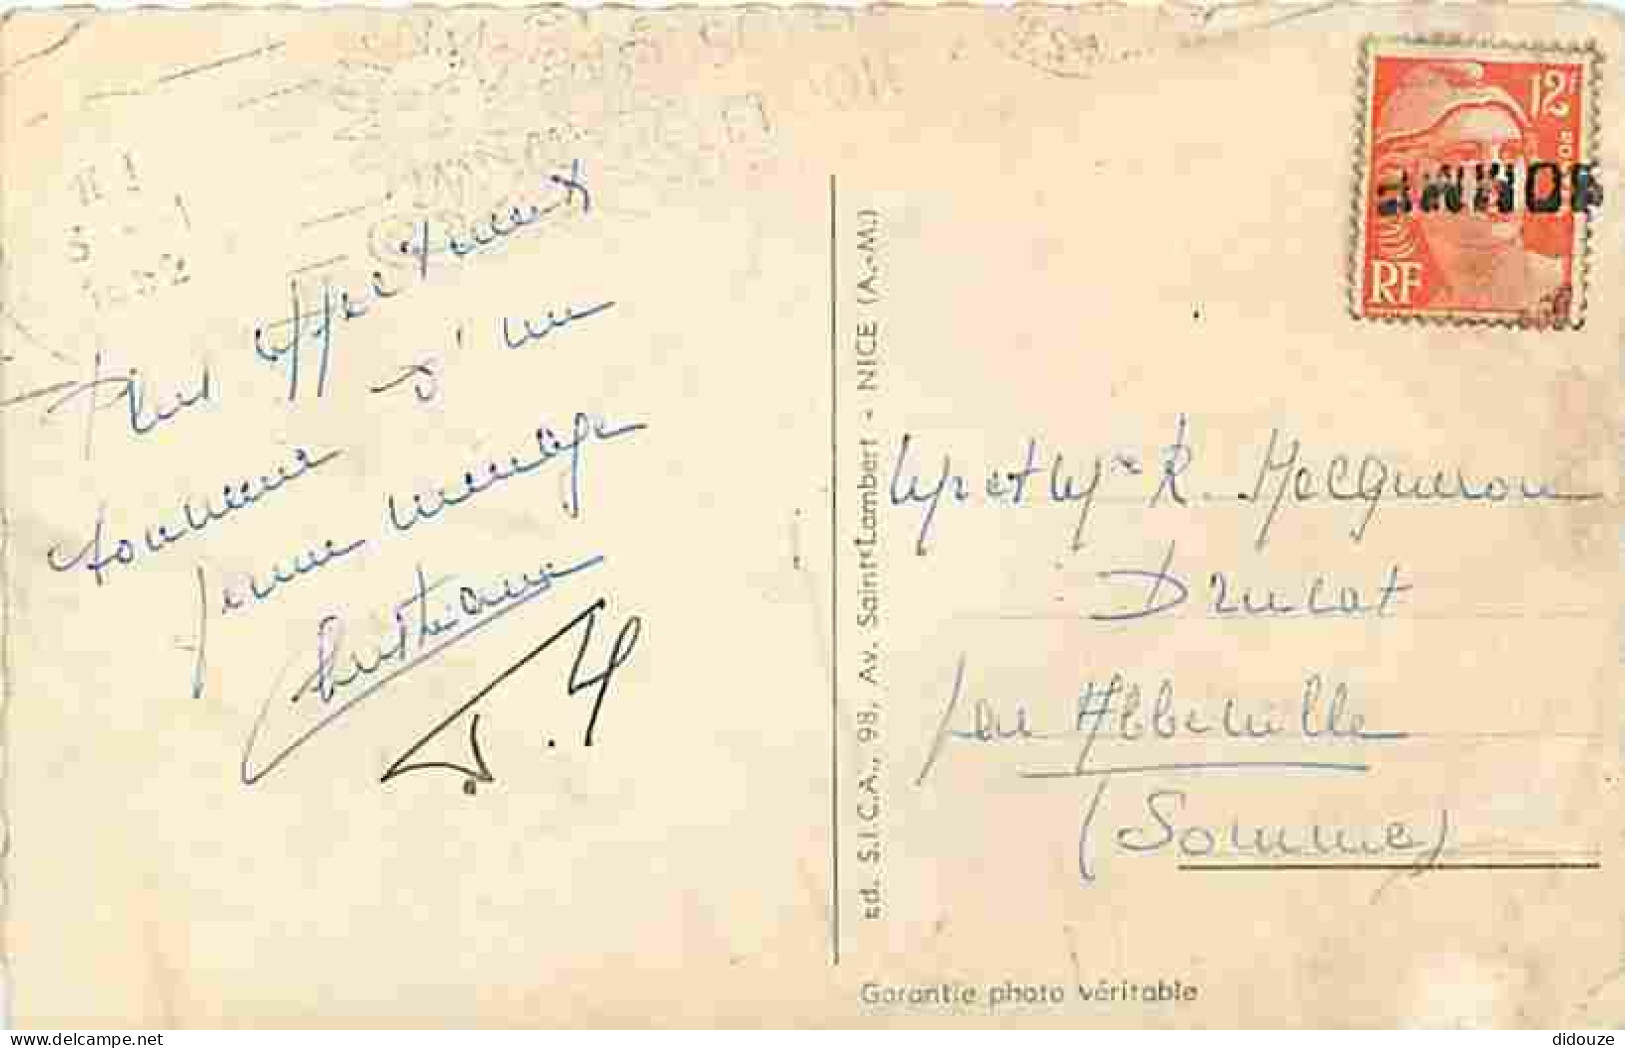 Plus affectueux
souvenir d'un
jeune ménage
Christiane
12F
RF
Mr et Mme R. Macqueron
Drucat
par Abbeville
(Somme)
Ed. S.I.C.A., 98, Av. Saint-Lambert - NICE (A.-M.)
Garantie photo véritable
didouze